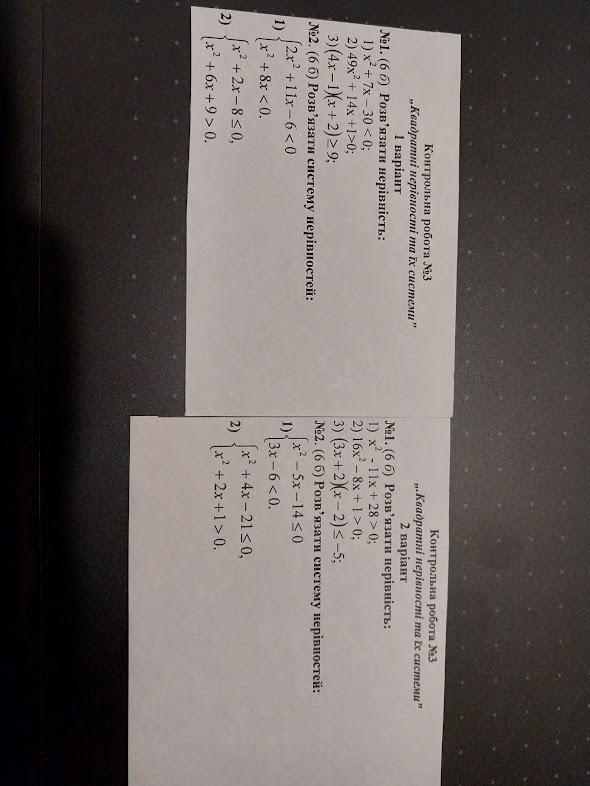 Контрольна робота №3
„Квадратні нерівності та їх системи”
1 варіант
№1. (6 б) Розв’язати нерівність:
1) x² + 7x − 30 < 0;
2) 49x² + 14x +1>0;
3) (4x − 1)(x + 2) ≥ 9;
№2. (6 б) Розв’язати систему нерівностей:
1) { 2x² + 11x − 6 < 0
x² + 8x < 0.
2) { x² + 2x − 8 ≤ 0,
x² + 6x + 9 > 0.
Контрольна робота №3
„Квадратні нерівності та їх системи”
2 варіант
№1. (6 б) Розв’язати нерівність:
1) x² - 11x + 28 > 0;
2) 16x² − 8x + 1 > 0;
3) (3x + 2)(x − 2) ≤ −5;
№2. (6 б) Розв’язати систему нерівностей:
1) { x² − 5x − 14 ≤ 0
3x − 6 < 0.
2) { x² + 4x − 21 ≤ 0,
x² + 2x + 1 > 0.